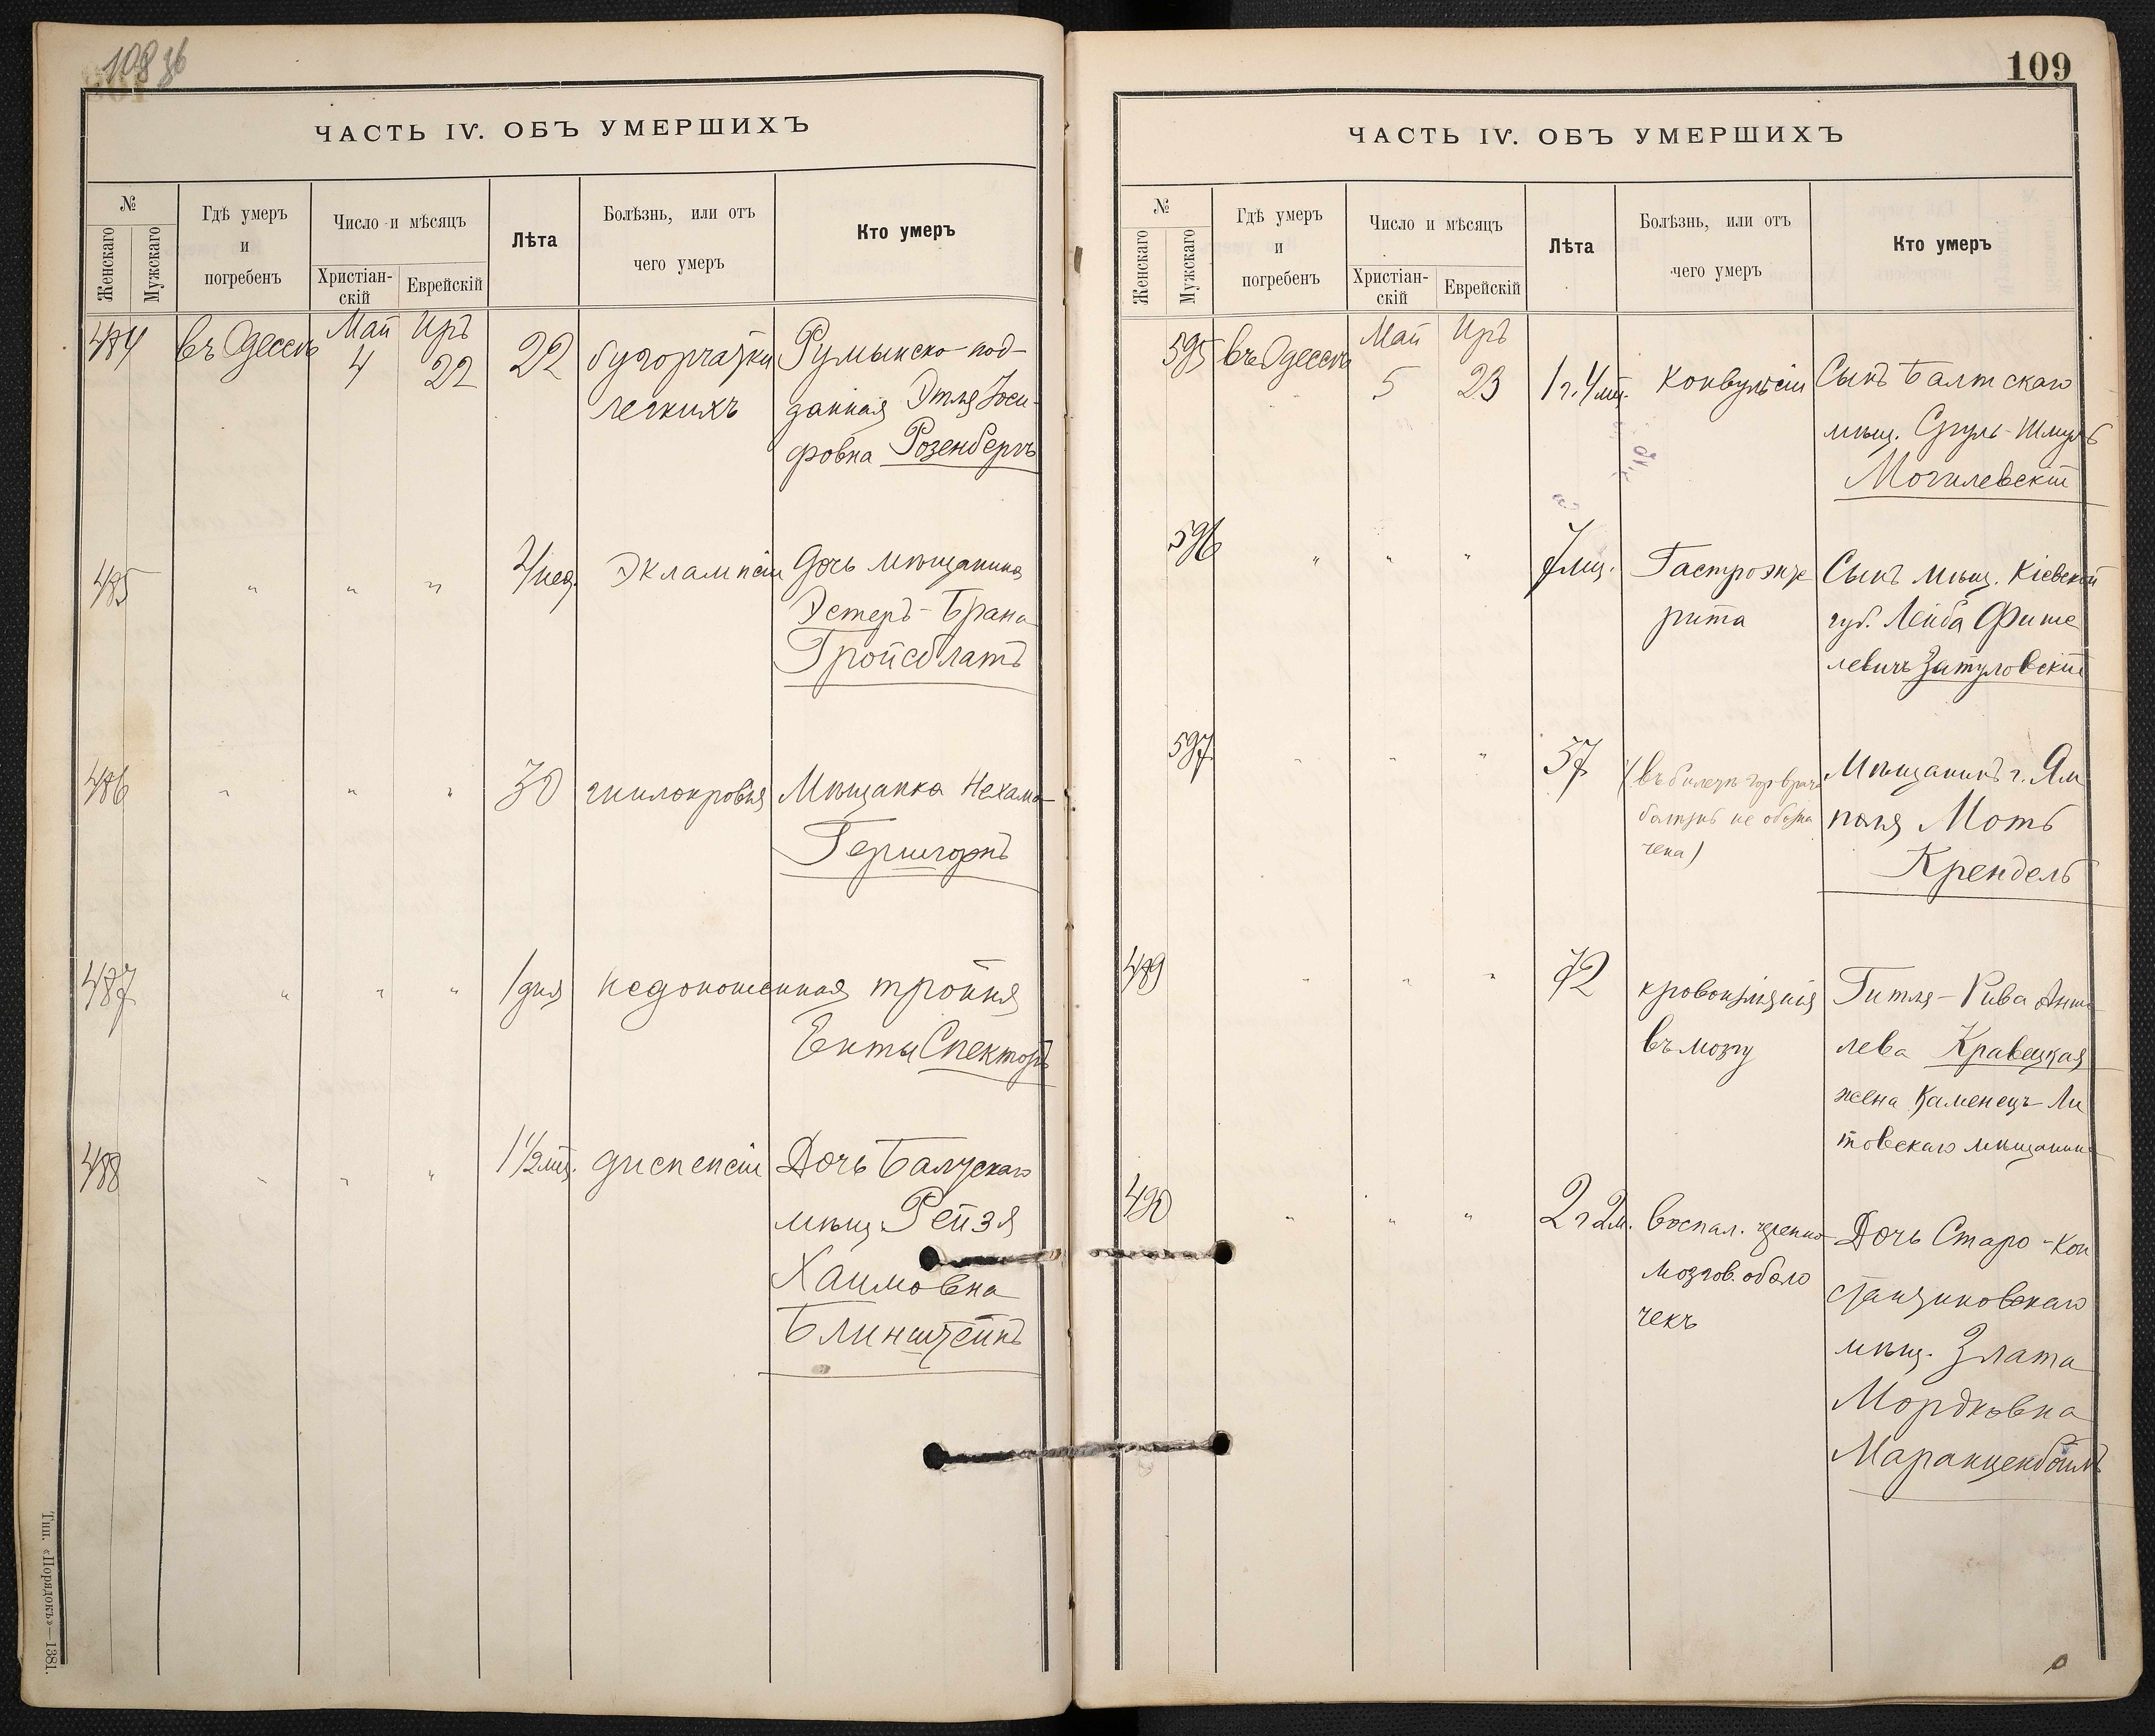 108 зб
ЧАСТЬ IV. ОБЪ УМЕРШИХЪ
№
Женскаго
Мужскаго
Гдѣ умеръ
и
погребенъ
Число и мѣсяцъ
Христіан-
скій
Еврейскій
Лѣта
Болѣзнь, или отъ
чего умеръ
Кто умеръ
484 въ Одессѣ Май 4 Иръ 22 22 бугорчатки Румынско-под-
легкихъ данная Этля Іоси-
фовна Розенбергъ
485 " " " 2/нед. Эклампсіи Дочь мѣщанина
Эстеръ-Брана
Гройсблатъ
486 " " " 30 гнилокровія Мѣщанка Нехама
Гершгорнъ
487 " " " 1 дня недоношенная тройня
Енты Спекторъ
488 " " " 1 1/2 мѣс. диспепсіи Дочь Балтскаго
мѣщ. Рейзя
Хаимовна
Блинштейнъ
Тип. «Порядокъ»—1381.
109
ЧАСТЬ IV. ОБЪ УМЕРШИХЪ
№
Женскаго
Мужскаго
Гдѣ умеръ
и
погребенъ
Число и мѣсяцъ
Христіан-
скій
Еврейскій
Лѣта
Болѣзнь, или отъ
чего умеръ
Кто умеръ
595 въ Одессѣ Май 5 Иръ 23 1 г. 4 мѣс. Конвульсіи Сынъ Балтскаго
мѣщ. Сруль-Шмуль
Могилевскій
596 " " " 7 мѣс. Гастроэнте Сынъ мѣщ. Кіевской
рита губ. Лейба Фише
левичъ Затуловскій
597 " " " 57 (въ билетѣ гор врача Мѣщанинъ г. Ям
болѣзнь не обозна поля Моть
чена) Крендель
489 " " " 72 кровоизліянія Гитля-Рива Анше
въ мозгу лева Кравецкая
жена Каменецъ-Ли
товскаго мѣщанина
490 " " " 2 г 2 м. Воспал. черепно- Дочь Старо-Кон
мозгов. оболо стантиновскаго
чекъ мѣщ. Злата
Мордковна
Маранценбоймъ